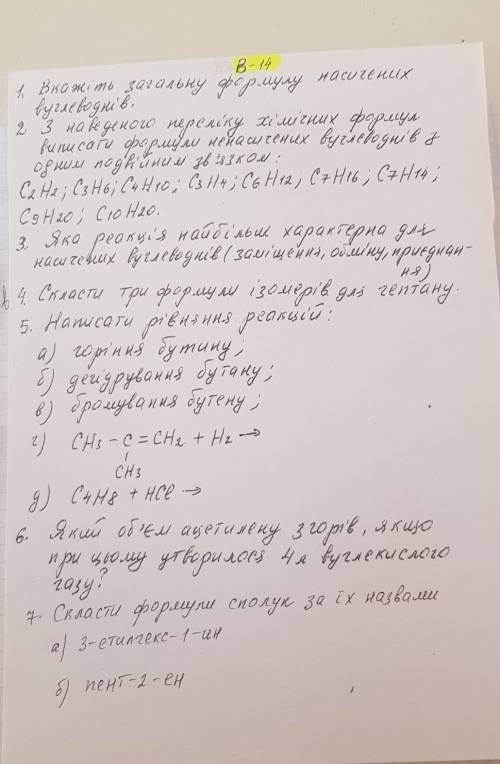 В-14
1. Вкажіть загальну формулу насичених
вуглеводнів.
2. З наведеного переліку хімічних формул
виписати формули ненасичених вуглеводнів з
одним подвійним зв'язком:
C2H2; C3H6; C4H10; C3H4; C6H12; C7H16; C7H14;
C9H20; C10H20.
3. Яка реакція найбільш характерна для
насичених вуглеводнів (заміщення, обміну, приєднан-
ня)
4. Скласти три формули ізомерів для гептану.
5. Написати рівняння реакцій:
а) горіння бутину;
б) дегідрування бутану;
в) бромування бутену;
г) CH3 – C = CH2 + H2 →
CH3
д) C4H8 + HCl →
6. Який об'єм ацетилену згорів, якщо
при цьому утворилося 4л вуглекислого
газу?
7. Скласти формули сполук за їх назвами
а) 3-етилгекс-1-ин
б) пент-2-ен